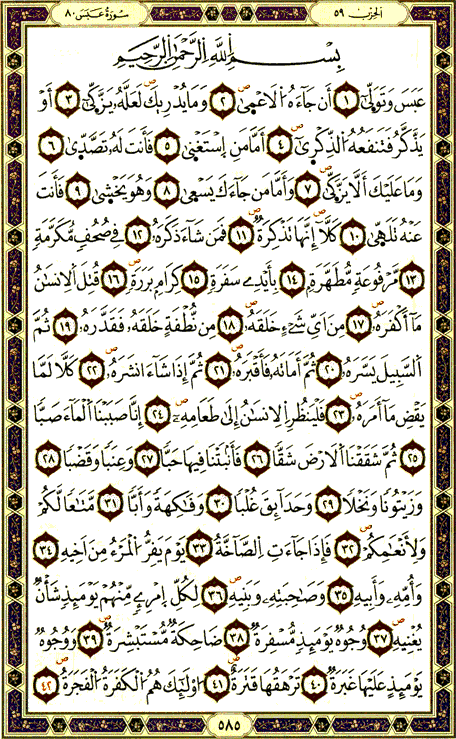 الحزب ٥٩
سُورَةُ عَبَسَ ٨٠
بِسْمِ اِللَّهِ اِلرَّحْمَٰنِ اِلرَّحِيمِ
عَبَسَ وَتَوَلَّىٰٓ ١ أَن جَآءَهُ اُلَاعْمَىٰ ٢ وَمَا يُدْرِيكَ لَعَلَّهُۥ يَزَّكَّىٰٓ ٣ أَوْ
يَذَّكَّرُ فَتَنفَعُهُ اُلذِّكْرَىٰٓ ٤ أَمَّا مَنِ اِسْتَغْنَىٰ ٥ فَأَنتَ لَهُۥ تَصَّدَّىٰ ٦
وَمَا عَلَيْكَ أَلَّا يَزَّكَّىٰ ٧ وَأَمَّا مَن جَآءَكَ يَسْعَىٰ ٨ وَهُوَ يَخْشَىٰ ٩ فَأَنتَ
عَنْهُ تَلَهَّىٰ ١٠ كَلَّآ إِنَّهَا تَذْكِرَةٌ ١١ فَمَن شَآءَ ذَكَرَهُۥ ١٢ فِے صُحُفٍ مُّكَرَّمَةٍ
١٣ مَّرْفُوعَةٍ مُّطَهَّرَةٍۭ ١٤ بِأَيْدِے سَفَرَةٍ ١٥ كِرَامٍۭ بَرَرَةٍ ١٦ قُتِلَ اَلِانسَٰنُ
مَآ أَكْفَرَهُۥ ١٧ مِنَ اَيِّ شَےْءٍ خَلَقَهُۥ ١٨ مِن نُّطْفَةٍ خَلَقَهُۥ فَقَدَّرَهُۥ ١٩ ثُمَّ
اَلسَّبِيلَ يَسَّرَهُۥ ٢٠ ثُمَّ أَمَاتَهُۥ فَأَقْبَرَهُۥ ٢١ ثُمَّ إِذَا شَآءَ انشَرَهُۥ ٢٢ كَلَّا لَمَّا
يَقْضِ مَآ أَمَرَهُۥ ٢٣ فَلْيَنظُرِ اِلِانسَٰنُ إِلَىٰ طَعَامِهِۦٓ ٢٤ إِنَّا صَبَبْنَا اَلْمَآءَ صَبّاً
٢٥ ثُمَّ شَقَقْنَا اَلَارْضَ شَقّاً ٢٦ فَأَنۢبَتْنَا فِيهَا حَبّاً ٢٧ وَعِنَباً وَقَضْباً ٢٨
وَزَيْتُوناً وَنَخْلاً ٢٩ وَحَدَآئِقَ غُلْباً ٣٠ وَفَٰكِهَةً وَأَبّاً ٣١ مَّتَٰعاً لَّكُمْ
وَلِأَنْعَٰمِكُمْ ٣٢ فَإِذَا جَآءَتِ اِلصَّآخَّةُ ٣٣ يَوْمَ يَفِرُّ اُلْمَرْءُ مِنَ اَخِيهِ ٣٤
وَأُمِّهِۦ وَأَبِيهِ ٣٥ وَصَٰحِبَتِهِۦ وَبَنِيهِ ٣٦ لِكُلِّ اِمْرِےٕٖ مِّنْهُمْ يَوْمَئِذٍ شَأْنٌ
يُغْنِيهِ ٣٧ وُجُوهٌ يَوْمَئِذٍ مُّسْفِرَةٌ ٣٨ ضَاحِكَةٌ مُّسْتَبْشِرَةٌ ٣٩ وَوُجُوهٌ
يَوْمَئِذٍ عَلَيْهَا غَبَرَةٌ ٤٠ تَرْهَقُهَا قَتَرَةٌ ٤١ اُوْلَٰٓئِكَ هُمُ اُلْكَفَرَةُ اُلْفَجَرَةُ ٤٢
٥٨٥